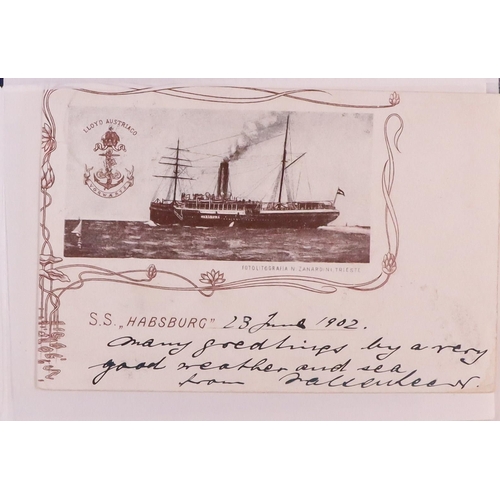 LLOYD AUSTRIACO
VORWÄRTS
FOTOLITOGRAFIA N. ZANARDINI, TRIESTE
S.S. „HABSBURG" 23 June 1902.
Many greetings by a very
good weather and sea
from